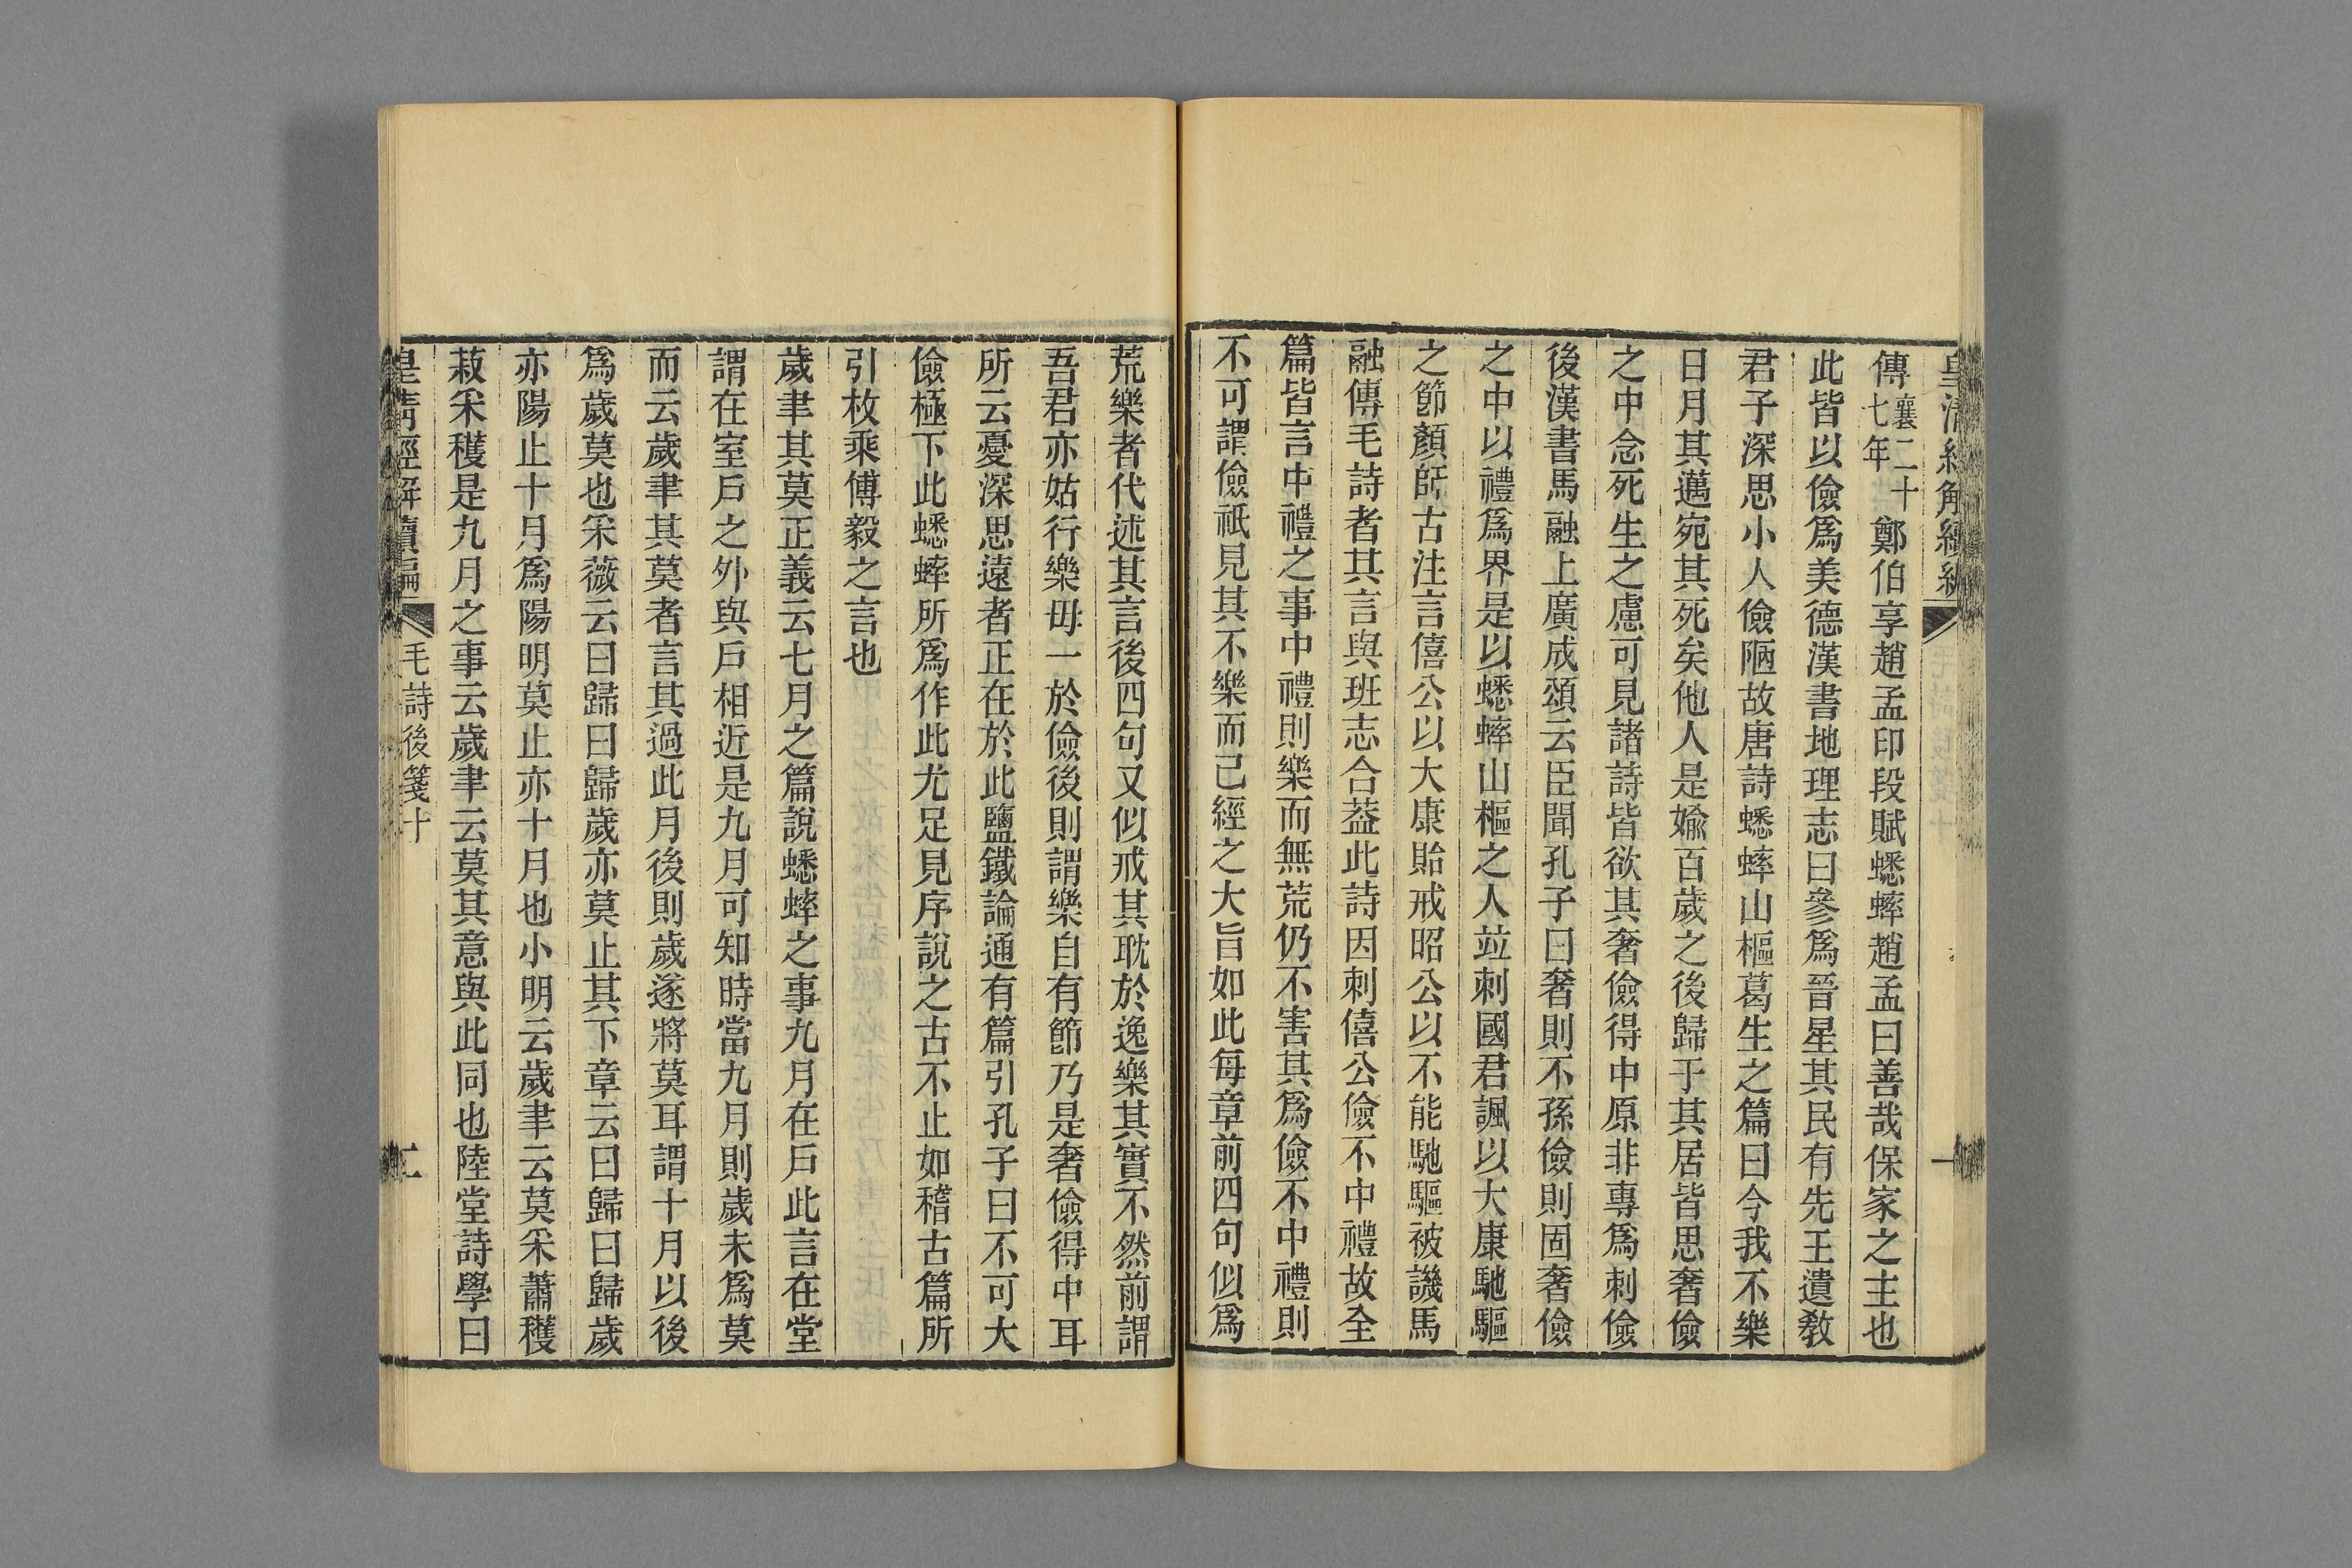 皇清經解續編
一
傳襄二十七年鄭伯享趙孟印段賦蟋蟀趙孟曰善哉保家之主也
此皆以儉爲美德漢書地理志曰參爲晉星其民有先王遺敎
君子深思小人儉陋故唐詩蟋蟀山樞葛生之篇曰今我不樂
日月其邁宛其死矣他人是媮百歲之後歸于其居皆思奢儉
之中念死生之慮可見諸詩皆欲其奢儉得中原非專爲刺儉
後漢書馬融上廣成頌云臣聞孔子曰奢則不孫儉則固奢儉
之中以禮爲界是以蟋蟀山樞之人竝刺國君諷以大康馳驅
之節顏師古注言僖公以大康貽戒昭公以不能馳驅被譏馬
融傳毛詩者其言與班志合葢此詩因刺僖公儉不中禮故全
篇皆言中禮之事中禮則樂而無荒仍不害其爲儉不中禮則
不可謂儉祇見其不樂而已經之大旨如此每章前四句似爲
荒樂者代述其言後四句又似戒其耽於逸樂其實不然前謂
吾君亦姑行樂毋一於儉後則謂樂自有節乃是奢儉得中耳
所云憂深思遠者正在於此鹽鐵論通有篇引孔子曰不可大
儉極下此蟋蟀所爲作此尤足見序說之古不止如稽古篇所
引枚乘傅毅之言也
歲聿其莫正義云七月之篇說蟋蟀之事九月在戸此言在堂
謂在室戸之外與戸相近是九月可知時當九月則歲未爲莫
而云歲聿其莫者言其過此月後則歲遂將莫耳謂十月以後
爲歲莫也采薇云曰歸曰歸歲亦莫止其下章云曰歸曰歸歲
亦陽止十月爲陽明莫止亦十月也小明云歲聿云莫采蕭穫
菽采穫是九月之事云歲聿云莫其意與此同也陸堂詩學曰
皇清經解續編
毛詩後箋十
二